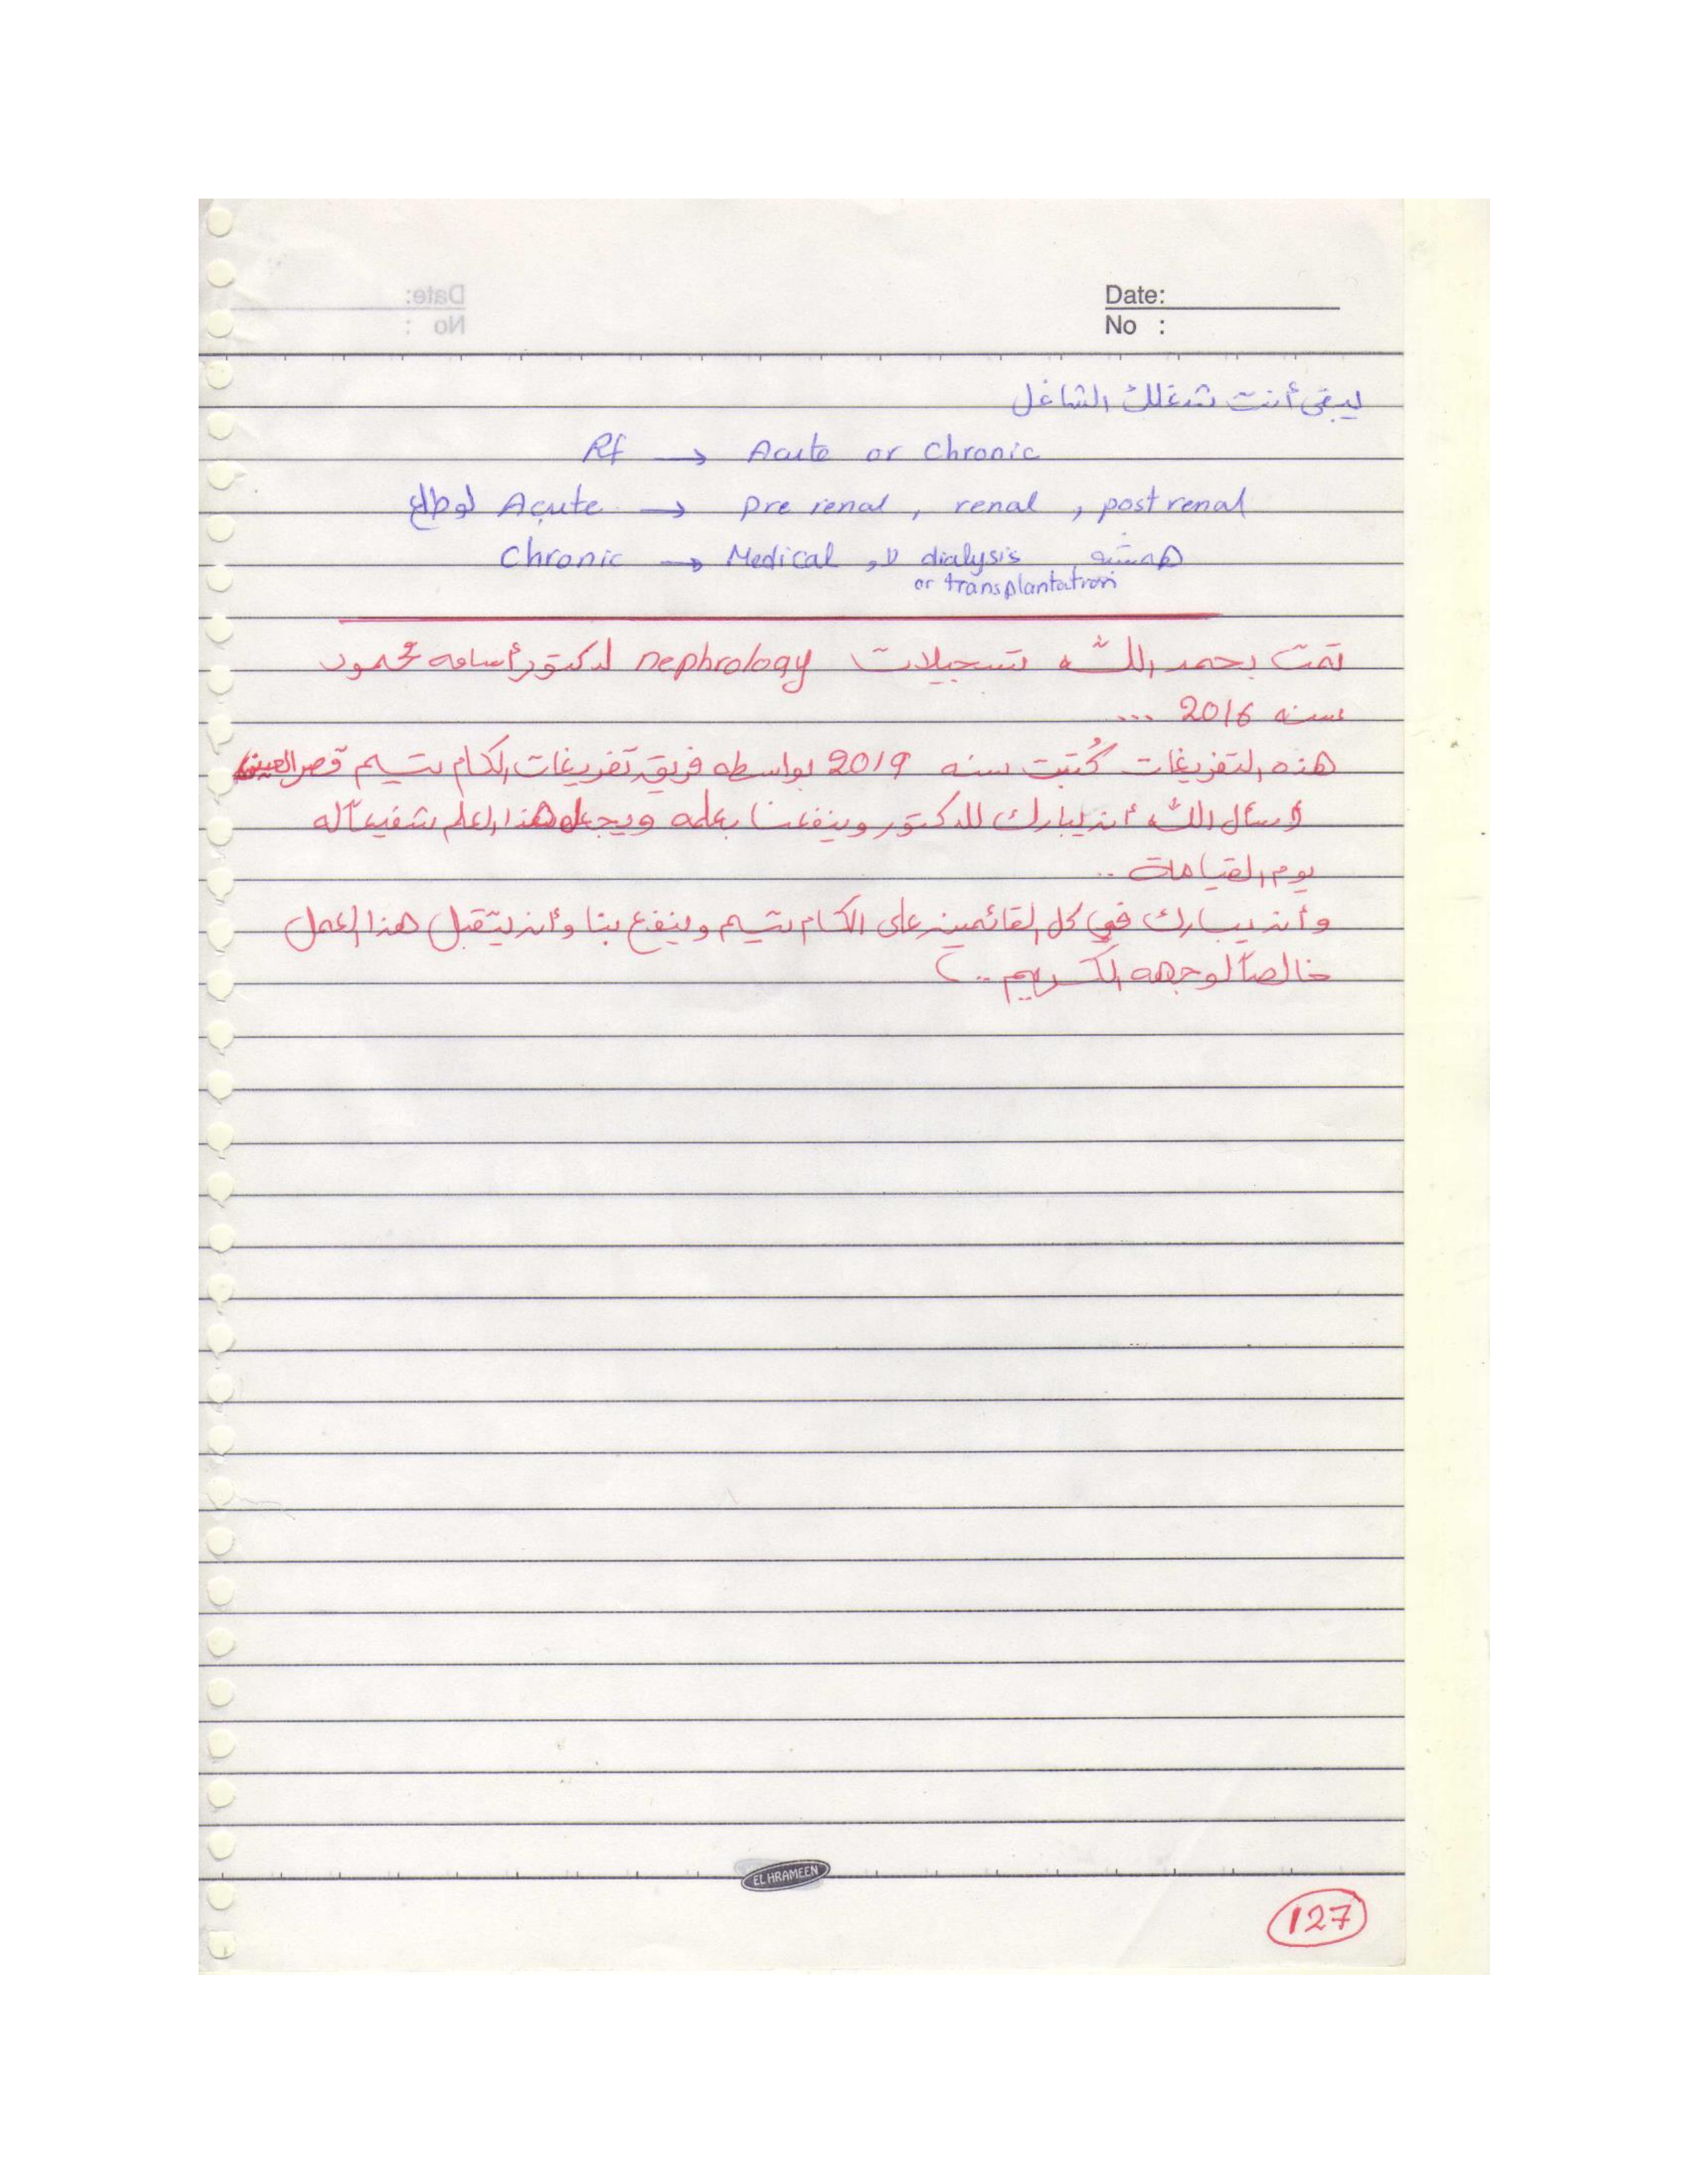 Date:
No :
ليبقى أنت شغلك الشاغل
Rf → Acute or Chronic
لو طلع Acute → pre renal, renal, post renal
Chronic → Medical ولا dialysis همشيه
or transplantation
تمت بحمد الله تسجيلات nephrology لدكتور أسامه محمود
سنه 2016 ...
هذه التفريغات كُتبت سنه 2019 بواسطه فريق تفريغات الكام تيم قصر العيني
أسأل الله أن يبارك للدكتور وينفعنا بعلمه ويجعل هذا العلم شفيعاً له
يوم القيامة ..
وأن يبارك في كل القائمين على الكام تيم وينفع بنا وأن يتقبل هذا العمل
خالصاً لوجهه الكريم ..
EL HRAMEEN
127